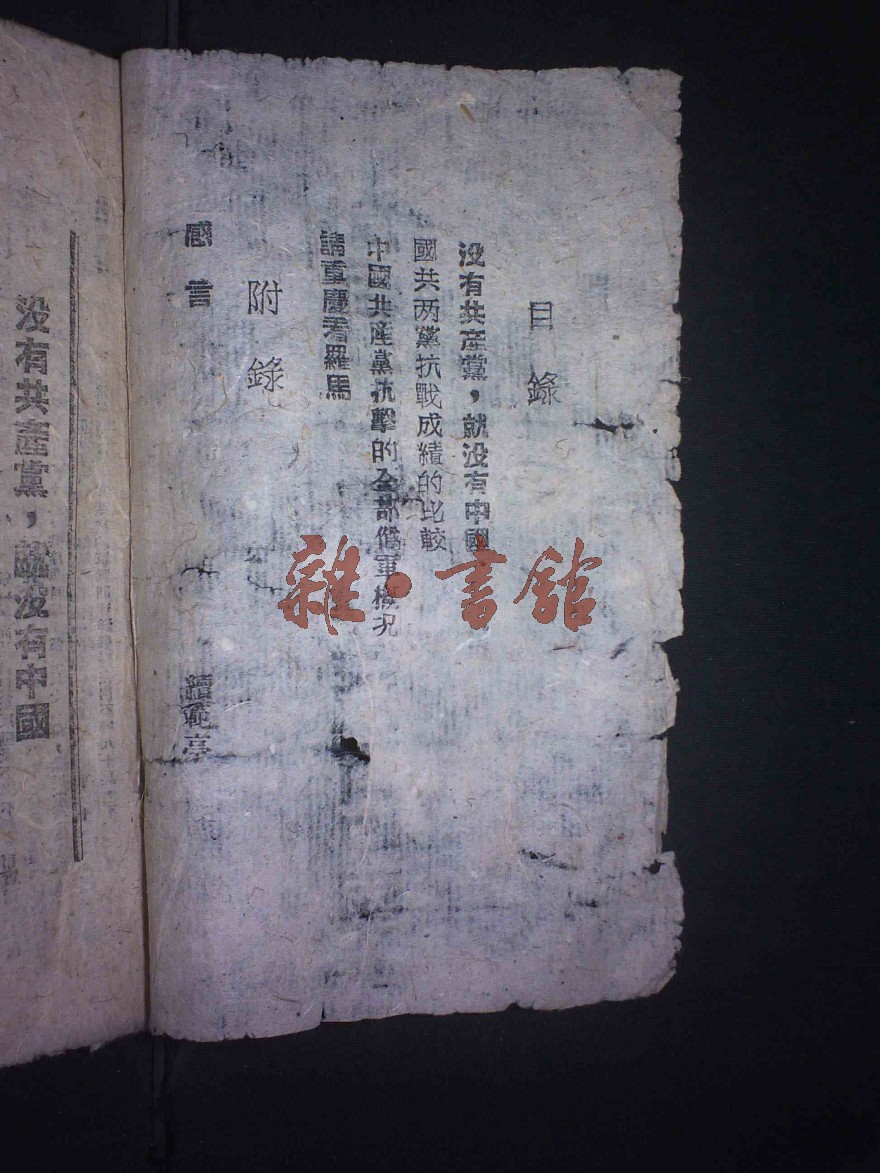 目錄
没有共產黨，就没有中國
國共两黨抗戰成績的比較
中國共産黨抗擊的全部僞軍概况
請重慶看羅馬
附錄
感言 續範亭
没有共產黨，就没有中國
雜·書館